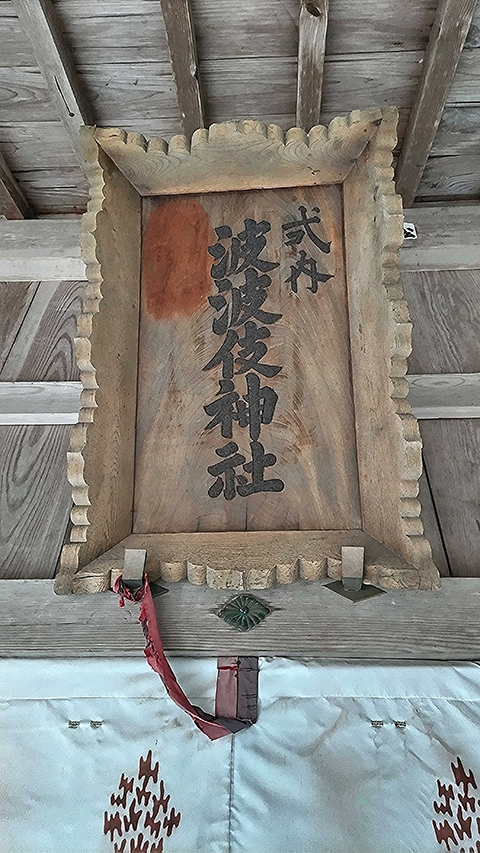 式内
波波伎神社